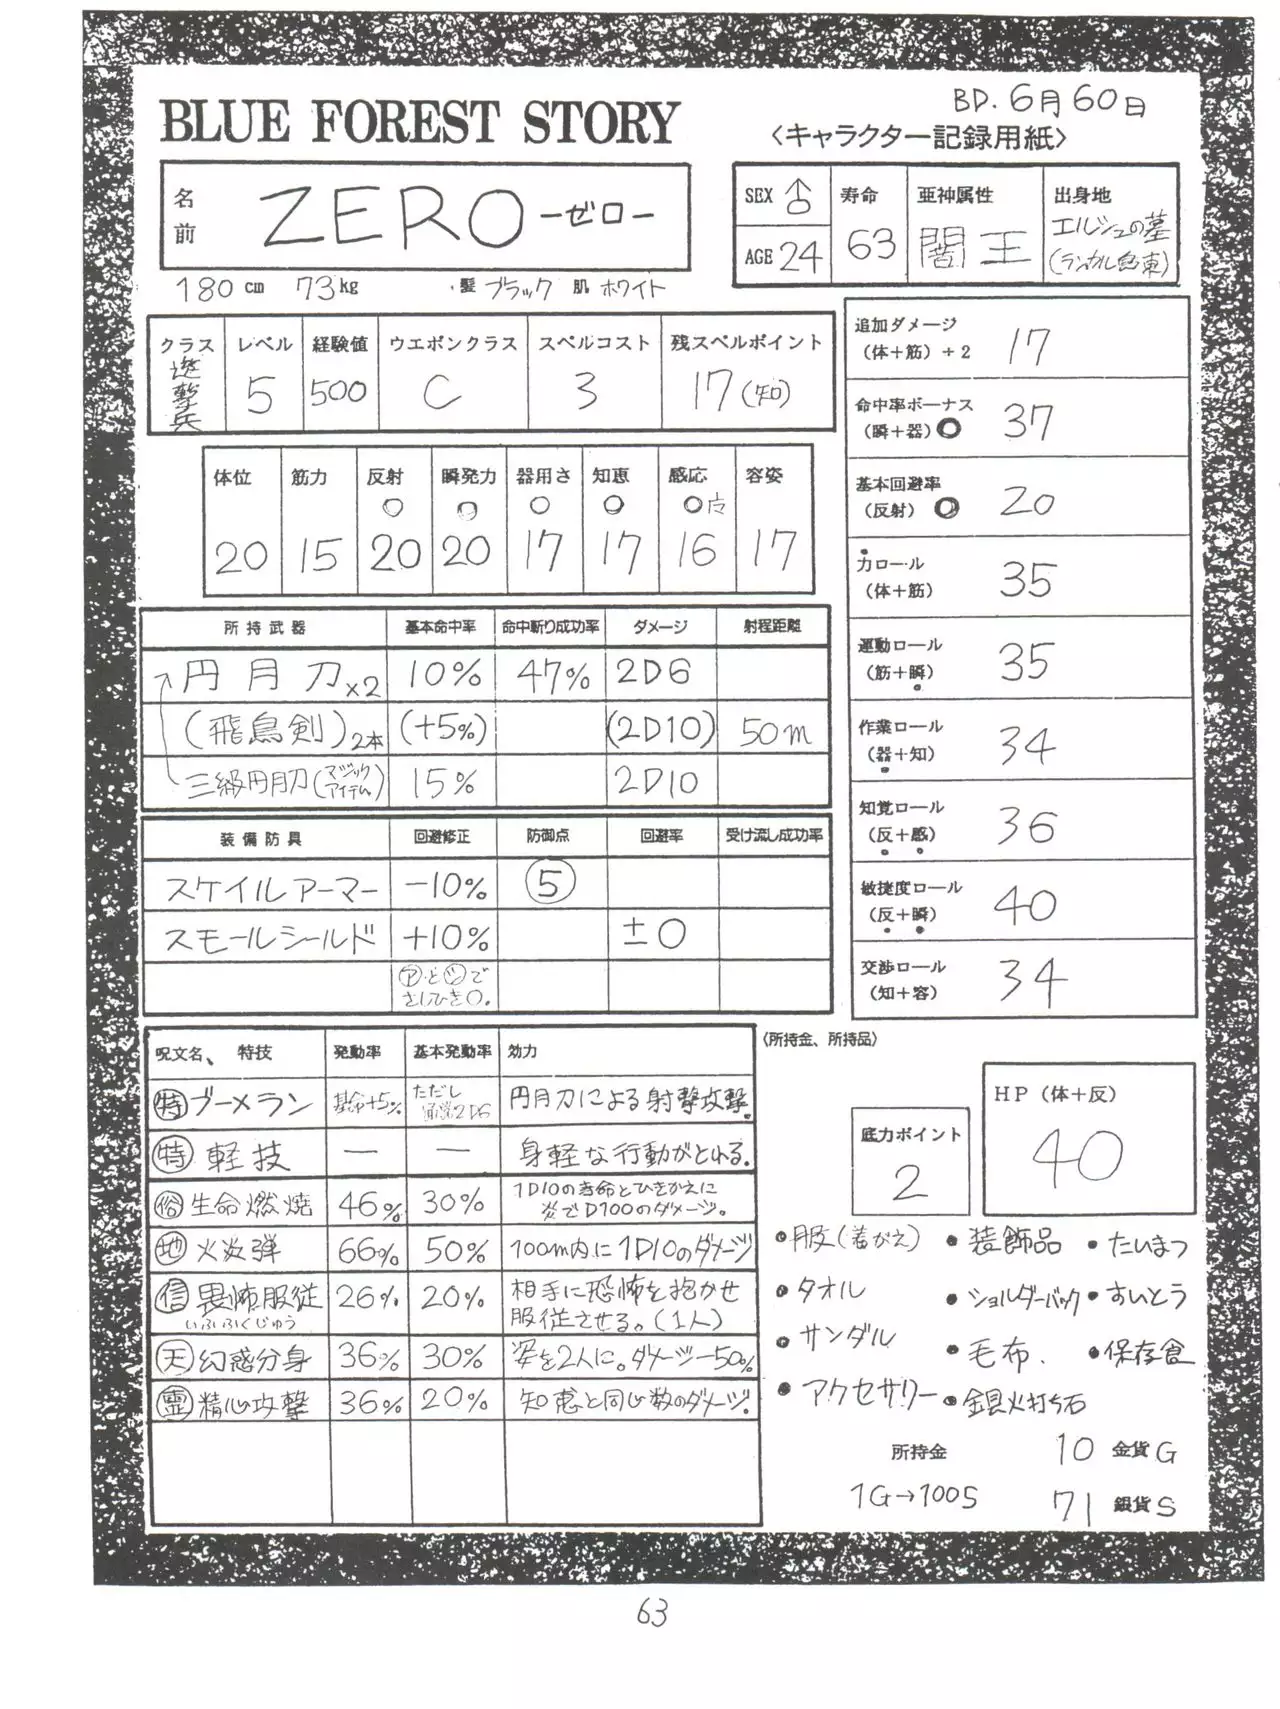 BD. 6月60日
BLUE FOREST STORY
〈キャラクター記録用紙〉
名前 ZERO -ゼロ-
SEX ♂ 寿命 63 亜神属性 闇王 出身地 エルシュの墓
AGE 24
180cm 73kg ・髪 ブラック 肌 ホワイト
クラス レベル 経験値 ウエポンクラス スペルコスト 残スペルポイント
遊撃兵 5 500 C 3 17(知)
体位 筋力 反射 瞬発力 器用さ 知恵 感応 容姿
20 15 20 20 17 17 16 17
追加ダメージ
(体+筋)÷2 17
命中率ボーナス
(瞬+器) 37
基本回避率
(反射) 20
力ロール
(体+筋) 35
運動ロール
(筋+瞬) 35
作業ロール
(器+知) 34
知覚ロール
(反+感) 36
敏捷度ロール
(反+瞬) 40
交渉ロール
(知+容) 34
所持武器 基本命中率 命中斬り成功率 ダメージ 射程距離
円月刀×2 10% 47% 2D6
(飛鳥剣)2本 (+5%) (2D10) 50m
三級円月刀(マジックアイテム) 15% 2D10
装備防具 回避修正 防御点 回避率 受け流し成功率
スケイルアーマー -10% ⑤
スモールシールド +10% ±0
㋐と㋛で
さしひき0.
呪文名、特技 発動率 基本発動率 効力
㊕ブーメラン 基命+5% ただし通常2D6 円月刀による射撃攻撃.
㊕軽技 — — 身軽な行動がとれる.
俗 生命燃焼 46% 30% 1D10の寿命とひきかえに
炎でD100のダメージ。
地 火炎弾 66% 50% 100m内に1D10のダメージ
信 畏怖服従 26% 20% 相手に恐怖を抱かせ
いふふくじゅう 服従させる。(1人)
天 幻惑分身 36% 30% 姿を2人に。ダメージ-50%
霊 精心攻撃 36% 20% 知恵と同じ数のダメージ.
〈所持金、所持品〉
底力ポイント
2
HP(体+反)
40
・服(着がえ) ・装飾品 ・たいまつ
・タオル ・ショルダーバック ・すいとう
・サンダル ・毛布. ・保存食
・アクセサリー ・銀火打ち石
所持金 10 金貨G
1G→100S 71 銀貨S
63